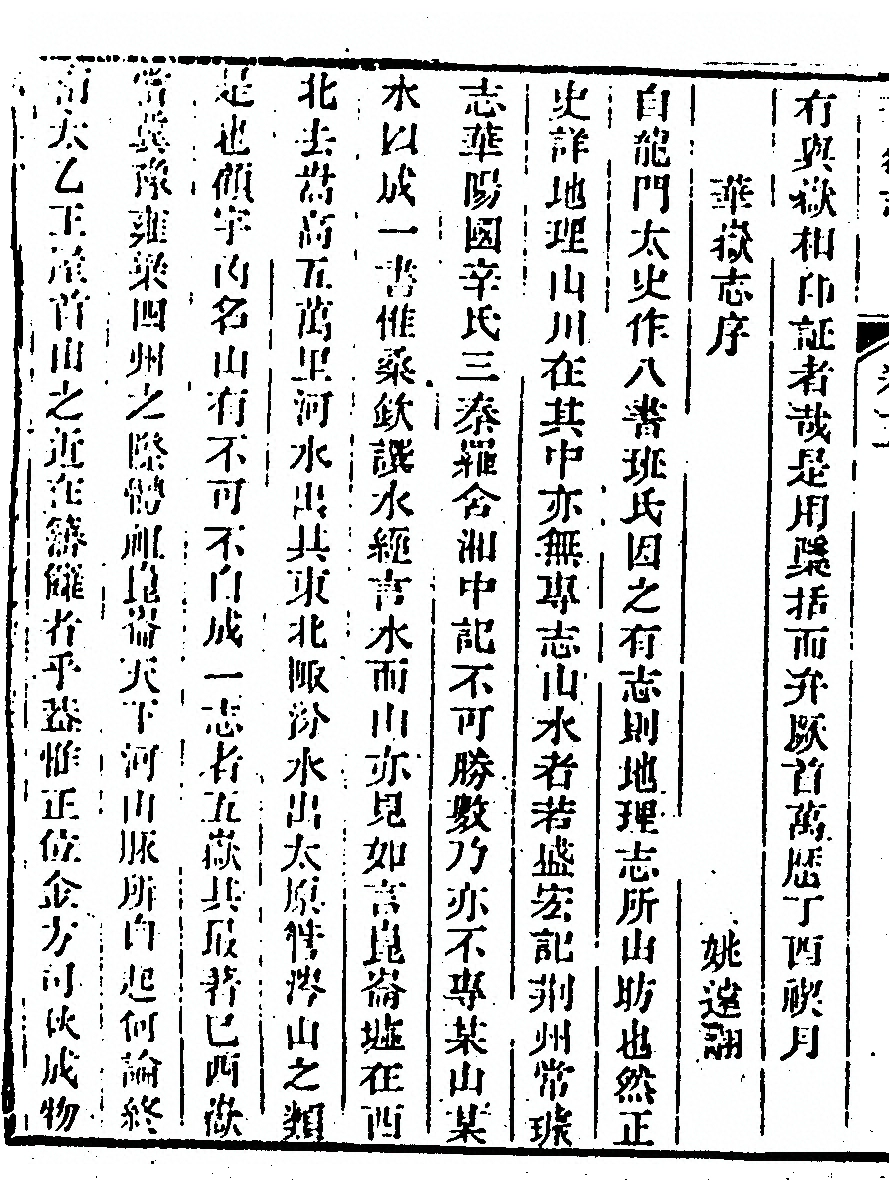 有與嶽相印証者哉是用檃括而弁厥首萬歴丁酉禊月
華嶽志序
姚遠翿
自龍門太史作八書班氏因之有志則地理志所山昉也然正
史詳地理山川在其中亦無專志山水者若盛宏記荆州常璩
志華陽國辛氏三秦羅含湘中記不可勝數乃亦不專某山某
水以成一書惟桑欽譔水經言水而山亦見如言崑崙墟在西
北去嵩高五萬里河水出其東北陬汾水出太原管涔山之類
是也顧宇内名山有不可不自成一志者五嶽其最著巳西嶽
當冀豫雍梁四州之際體祖崑崙天下河山脉所自起何論終
南太乙王屋首山之近在籓籬者乎蓋惟正位金方司伙成物